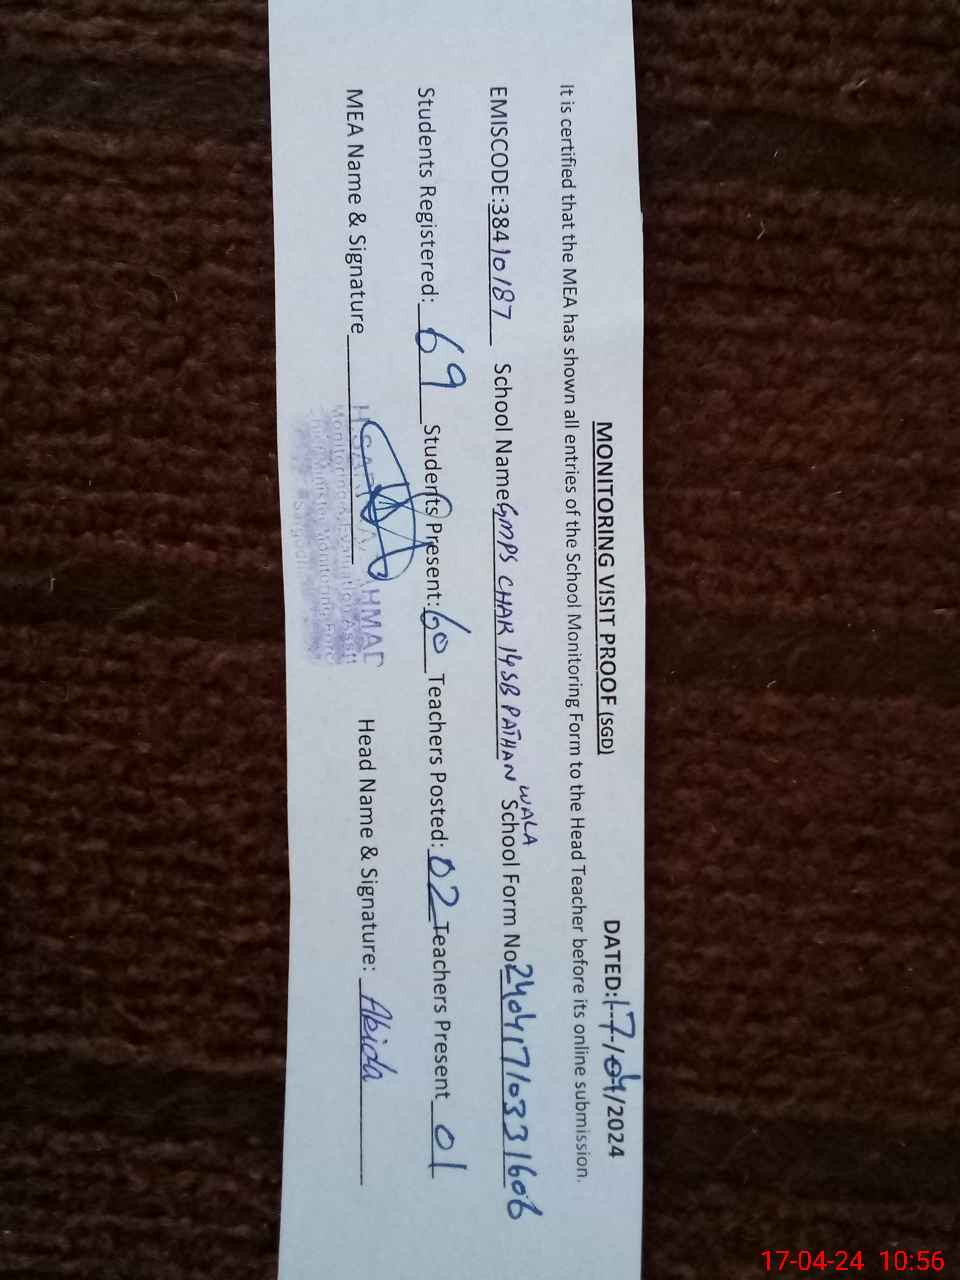 MONITORING VISIT PROOF (SGD) DATED:17/04/2024
It is certified that the MEA has shown all entries of the School Monitoring Form to the Head Teacher before its online submission.
EMISCODE:38410187 School Name GMPS CHAK 14SB PATHAN WALA School Form No 24041710331606
Students Registered: 69 Students Present: 60 Teachers Posted: 02 Teachers Present 01
MEA Name & Signature Head Name & Signature: Abida
AHMAD
Monitoring & Evaluation Asstt
Chief Minister Monitoring Force
Sargodha
17-04-24 10:56